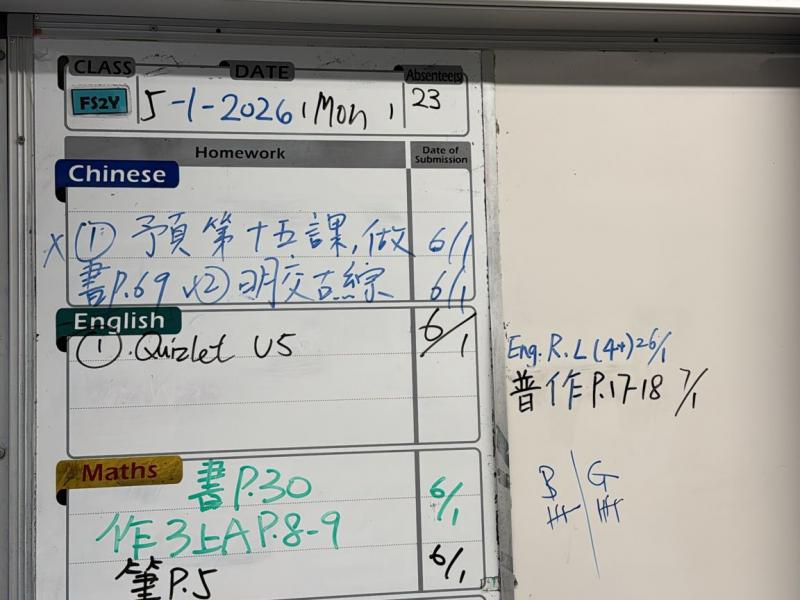 CLASS DATE Absentee(s)
FS2Y 5-1-2026 (Mon) 23
Homework Date of Submission
Chinese
x ① 預第十五課, 做 6/1
書P.69 x② 明交古綜 6/1
English
① Quizlet U5 6/1
Maths
書P.30 6/1
作3上A P.8-9
筆P.5 6/1
Eng. R.L (4+) 26/1
普作P.17-18 7/1
B G